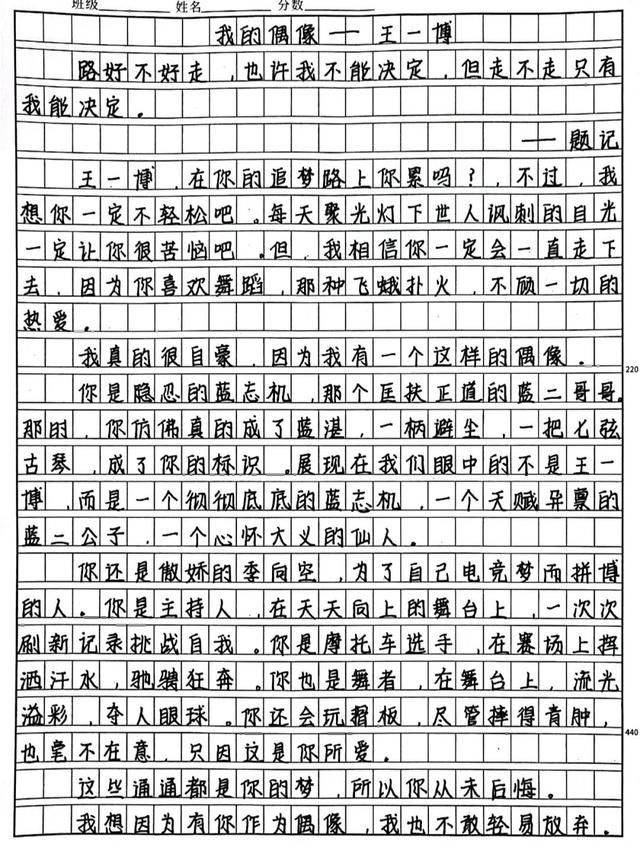 班级 姓名 分数
我的偶像——王一博
路好不好走，也许我不能决定，但走不走只有
我能决定。
——题记
王一博，在你的追梦路上你累吗？，不过，我
想你一定不轻松吧。每天聚光灯下世人讽刺的目光
一定让你很苦恼吧。但，我相信你一定会一直走下
去，因为你喜欢舞蹈，那种飞蛾扑火，不顾一切的
热爱。
我真的很自豪，因为我有一个这样的偶像。
220
你是隐忍的蓝忘机，那个匡扶正道的蓝二哥哥。
那时，你仿佛真的成了蓝湛，一柄避尘，一把七弦
古琴，成了你的标识。展现在我们眼中的不是王一
博，而是一个彻彻底底的蓝忘机，一个天赋异禀的
蓝二公子，一个心怀大义的仙人。
你还是傲娇的季向空，为了自己电竞梦而拼博
的人。你是主持人，在天天向上的舞台上，一次次
刷新记录挑战自我。你是摩托车选手，在赛场上挥
洒汗水，驰骋狂奔。你也是舞者，在舞台上，流光
溢彩，夺人眼球。你还会玩滑板，尽管摔得青肿，
440
也毫不在意，只因这是你所爱。
这些通通都是你的梦，所以你从未后悔。
我想因为有你作为偶像，我也不敢轻易放弃。